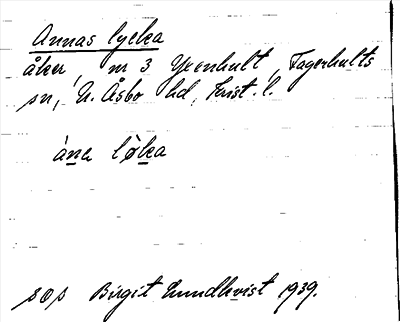 Annas lycka
åker, nr 3 Yxenhult, Fagerhults
sn, N. Åsbo hd, Krist. l.
àna lỳka
sos Birgit Lundkvist 1939.